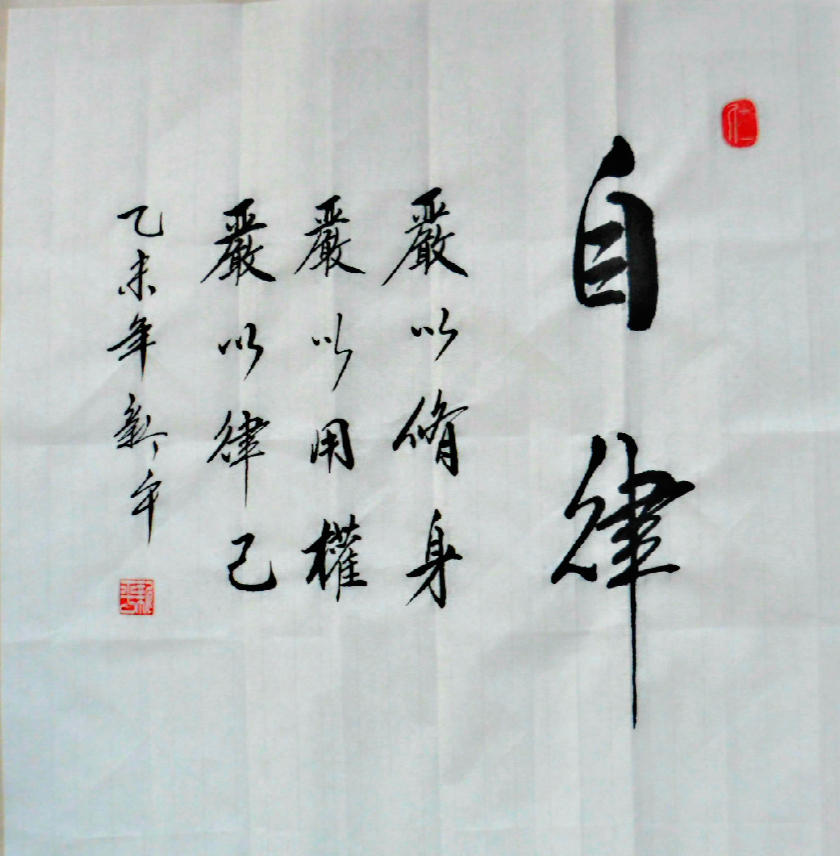 自律
嚴以脩身
嚴以用權
嚴以律己
乙未年新平